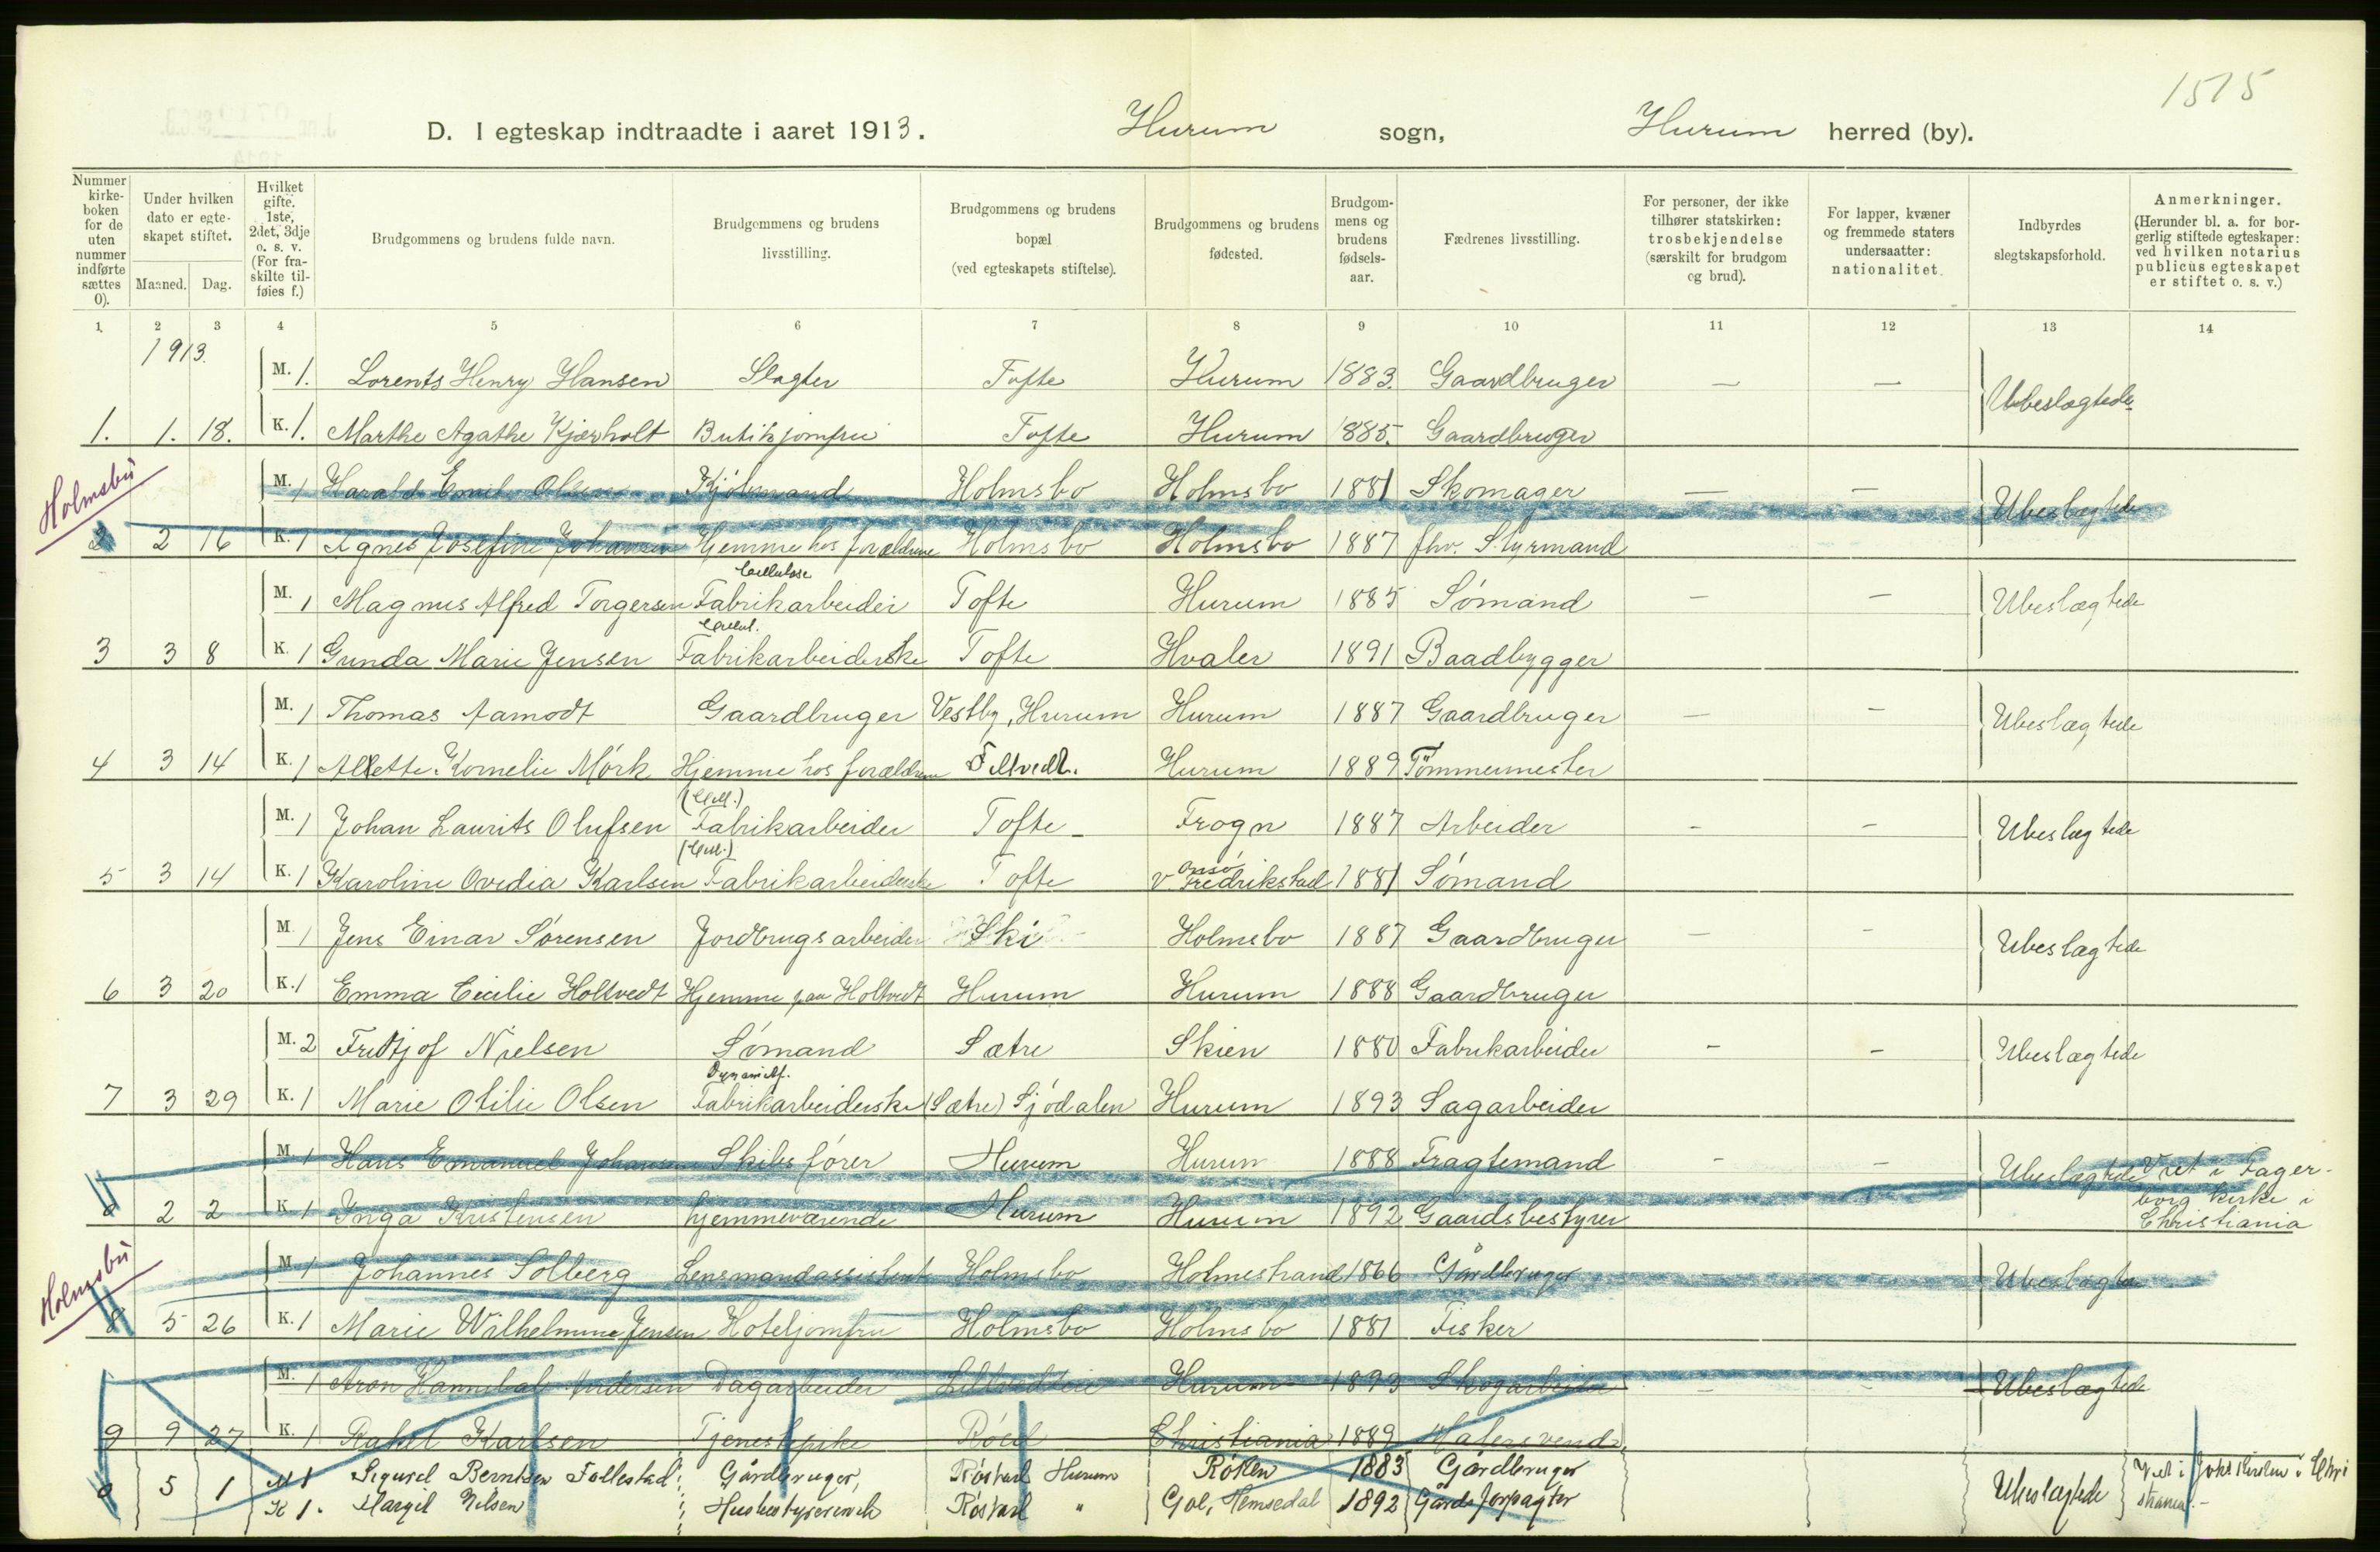 1515
D. I egteskap indtraadte i aaret 1913. Hurum sogn, Hurum herred (by).
Nummer kirke-boken for de uten nummer indførte sættes 0).
Under hvilken dato er egte-skapet stiftet.
Maaned. Dag.
Hvilket gifte. 1ste, 2det, 3dje o. s. v. (For fra-skilte til-føies f.)
Brudgommens og brudens fulde navn.
Brudgommens og brudens livsstilling.
Brudgommens og brudens bopæl (ved egteskapets stiftelse).
Brudgommens og brudens fødested.
Brudgom-mens og brudens fødsels-aar.
Fædrenes livsstilling.
For personer, der ikke tilhører statskirken: trosbekjendelse (særskilt for brudgom og brud).
For lapper, kvæner og fremmede staters undersaatter: nationalitet.
Indbyrdes slegtskapsforhold.
Anmerkninger. (Herunder bl. a. for bor-gerlig stiftede egteskaper: ved hvilken notarius publicus egteskapet er stiftet o. s. v.)
1. 2 3 4 5 6 7 8 9 10 11 12 13 14
1913.
M. 1. Lorents Henry Hansen Slagter Tofte Hurum 1883. Gaardbruger — — Ubeslægtede
1. 1. 18. K. 1. Marthe Agathe Kjærholt Butikjomfru Tofte Hurum 1885. Gaardbruger
Holmsbu
M. 1 Harald Emil Olsen Kjøbmand Holmsbo Holmsbo 1881 Skomager — — Ubeslægtede
2 2 16 K. 1 Agnes Josefine Johansen Hjemme hos forældrene Holmsbo Holmsbo 1887 fhv. Styrmand
Cellulose
M. 1 Magnus Alfred Torgersen Fabrikarbeider Tofte Hurum 1885 Sømand — — Ubeslægtede
Cellul.
3 3 8 K. 1 Gunda Marie Jensen Fabrikarbeiderske Tofte Hvaler 1891 Baadbygger
M. 1 Thomas Aamodt Gaardbruger Vestby, Hurum Hurum 1887 Gaardbruger — — Ubeslægtede
4 3 14 K. 1 Allette Kornelie Mørk Hjemme hos forældrene Filtvedt. Hurum 1889 Tømmermester
(Cell.)
M. 1 Johan Laurits Olufsen Fabrikarbeider Tofte Frogn 1887 Arbeider - - Ubeslægtede
(Cell.) Onsø
5 3 14 K. 1 Karoline Ovidia Karlsen Fabrikarbeiderske Tofte v Fredrikstad 1881 Sømand
M. 1 Jens Einar Sørensen Jordbrugsarbeider Ski Holmsbo 1887 Gaardbruger — - Ubeslægtede
6 3 20 K. 1 Emma Cecilie Holtvedt Hjemme paa Holtvedt Hurum Hurum 1888 Gaardbruger
M. 2 Fridtjof Nielsen Sømand Sætre Skien 1880 Fabrikarbeider - - Ubeslægtede
Dynamitf.
7 3 29 K. 1 Marie Otilie Olsen Fabrikarbeiderske (Sætre) Sjødalen Hurum 1893 Sagarbeider
M. 1 Hans Emanuel Johansen Skibsfører Hurum Hurum 1888 Fragtemand - - Ubeslægtede Viet i Fager-
borg kirke i
2 2 K. 1 Inga Kristensen hjemmeværende Hurum Hurum 1892 Gaardsbestyrer Christiania
Holmsbu
M. 1 Johannes Solberg Lensmandsassistent Holmsbo Holmestrand 1866 Gårdbruger Ubeslægtede
8 5 26 K. 1 Marie Wilhelmine Jensen Hoteljomfru Holmsbo Holmsbo 1881 Fisker
M. 1 Aron Hannibal Andersen Dagarbeider Hurum 1893 Skogarbeider — - Ubeslægtede
9 9 27 K. 1 Rakel Karlsen Tjenestepike Christiania 1889 Malersvend
0 5 1 M 1 Sigurd Berntsen Follestad Gårdbruger, Hurum Røken 1883 Gårdbruger Ubeslægtede Viet i Johs Kirken i Chri
K 1. Margit Nilsen Husbestyrerinde " Gol, Hemsedal 1892 Gårdsforpagter stiania.-